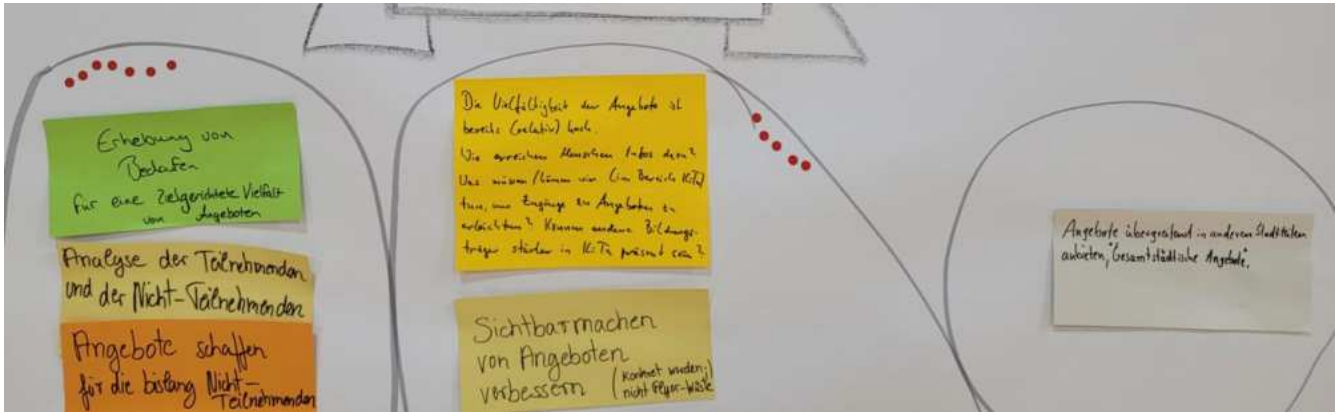 Erhebung von
Bedarfen
für eine zielgerichtete Vielfalt
von Angeboten
Analyse der Teilnehmenden
und der Nicht-Teilnehmenden
Angebote schaffen
für die bislang Nicht-
Teilnehmenden
Die Vielfältigkeit der Angebote ist
bereits (relativ) hoch.
Wie erreichen Menschen Infos dazu?
Was müssen/können wir (im Bereich KiTa)
tun, um Zugänge zu Angeboten zu
erleichtern? Können andere Bildungs-
träger stärker in KiTa präsent sein?
Sichtbarmachen
von Angeboten
verbessern (konkret werden;
nicht Flyer-Wüste
Angebote übergreifend in anderen Stadtteilen
anbieten, "Gesamtstädtische Angebote".